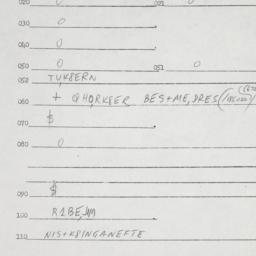 020 0 021 0
030 0
040 0
050 0 051 0
052 TUKBERN
060 + GHORKBER BES+ME, DRES
070 $
080 0
090 $
100
110 NIS+KBINGANEFTE